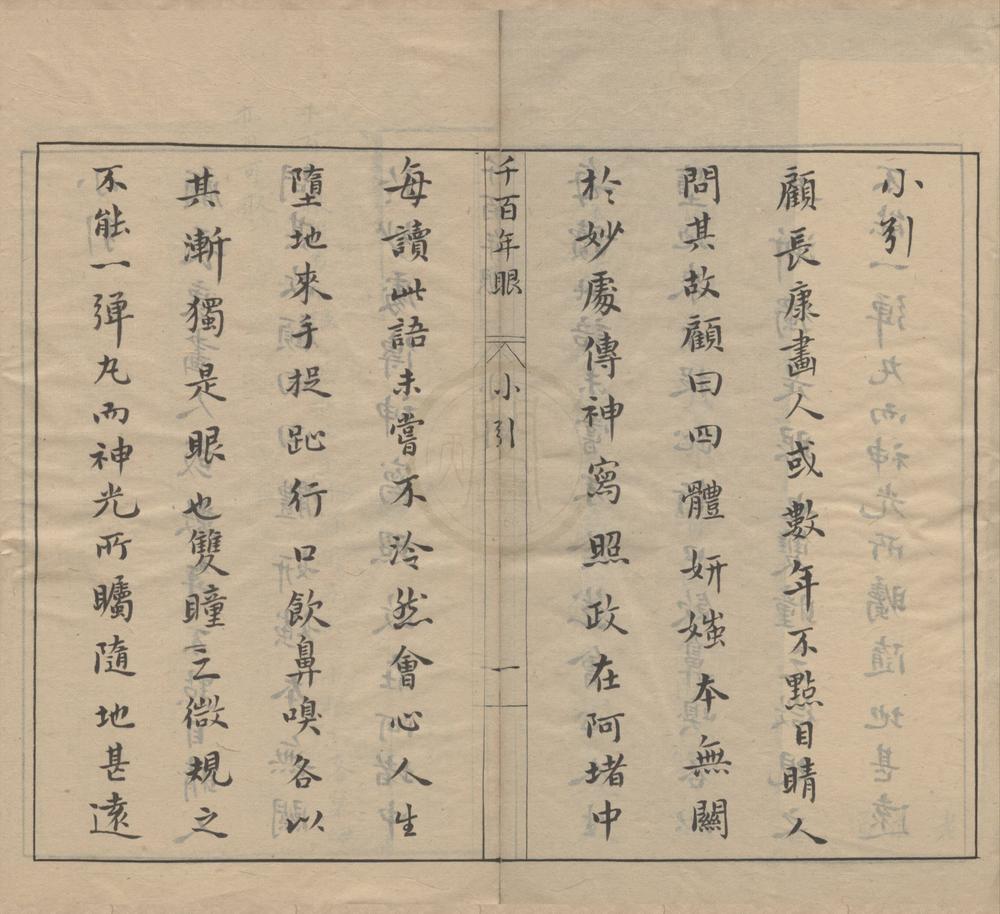 小引
顧長康畫人或數年不點目睛人
問其故顧曰四體妍媸本無關
於妙處傳神寫照政在阿堵中
千百年眼 小引 一
每讀此語未嘗不泠然會心人生
墮地來手捉趾行口飲鼻嗅各以
其漸獨是眼也雙瞳之微規之
不能一彈丸而神光所矚隨地甚遠